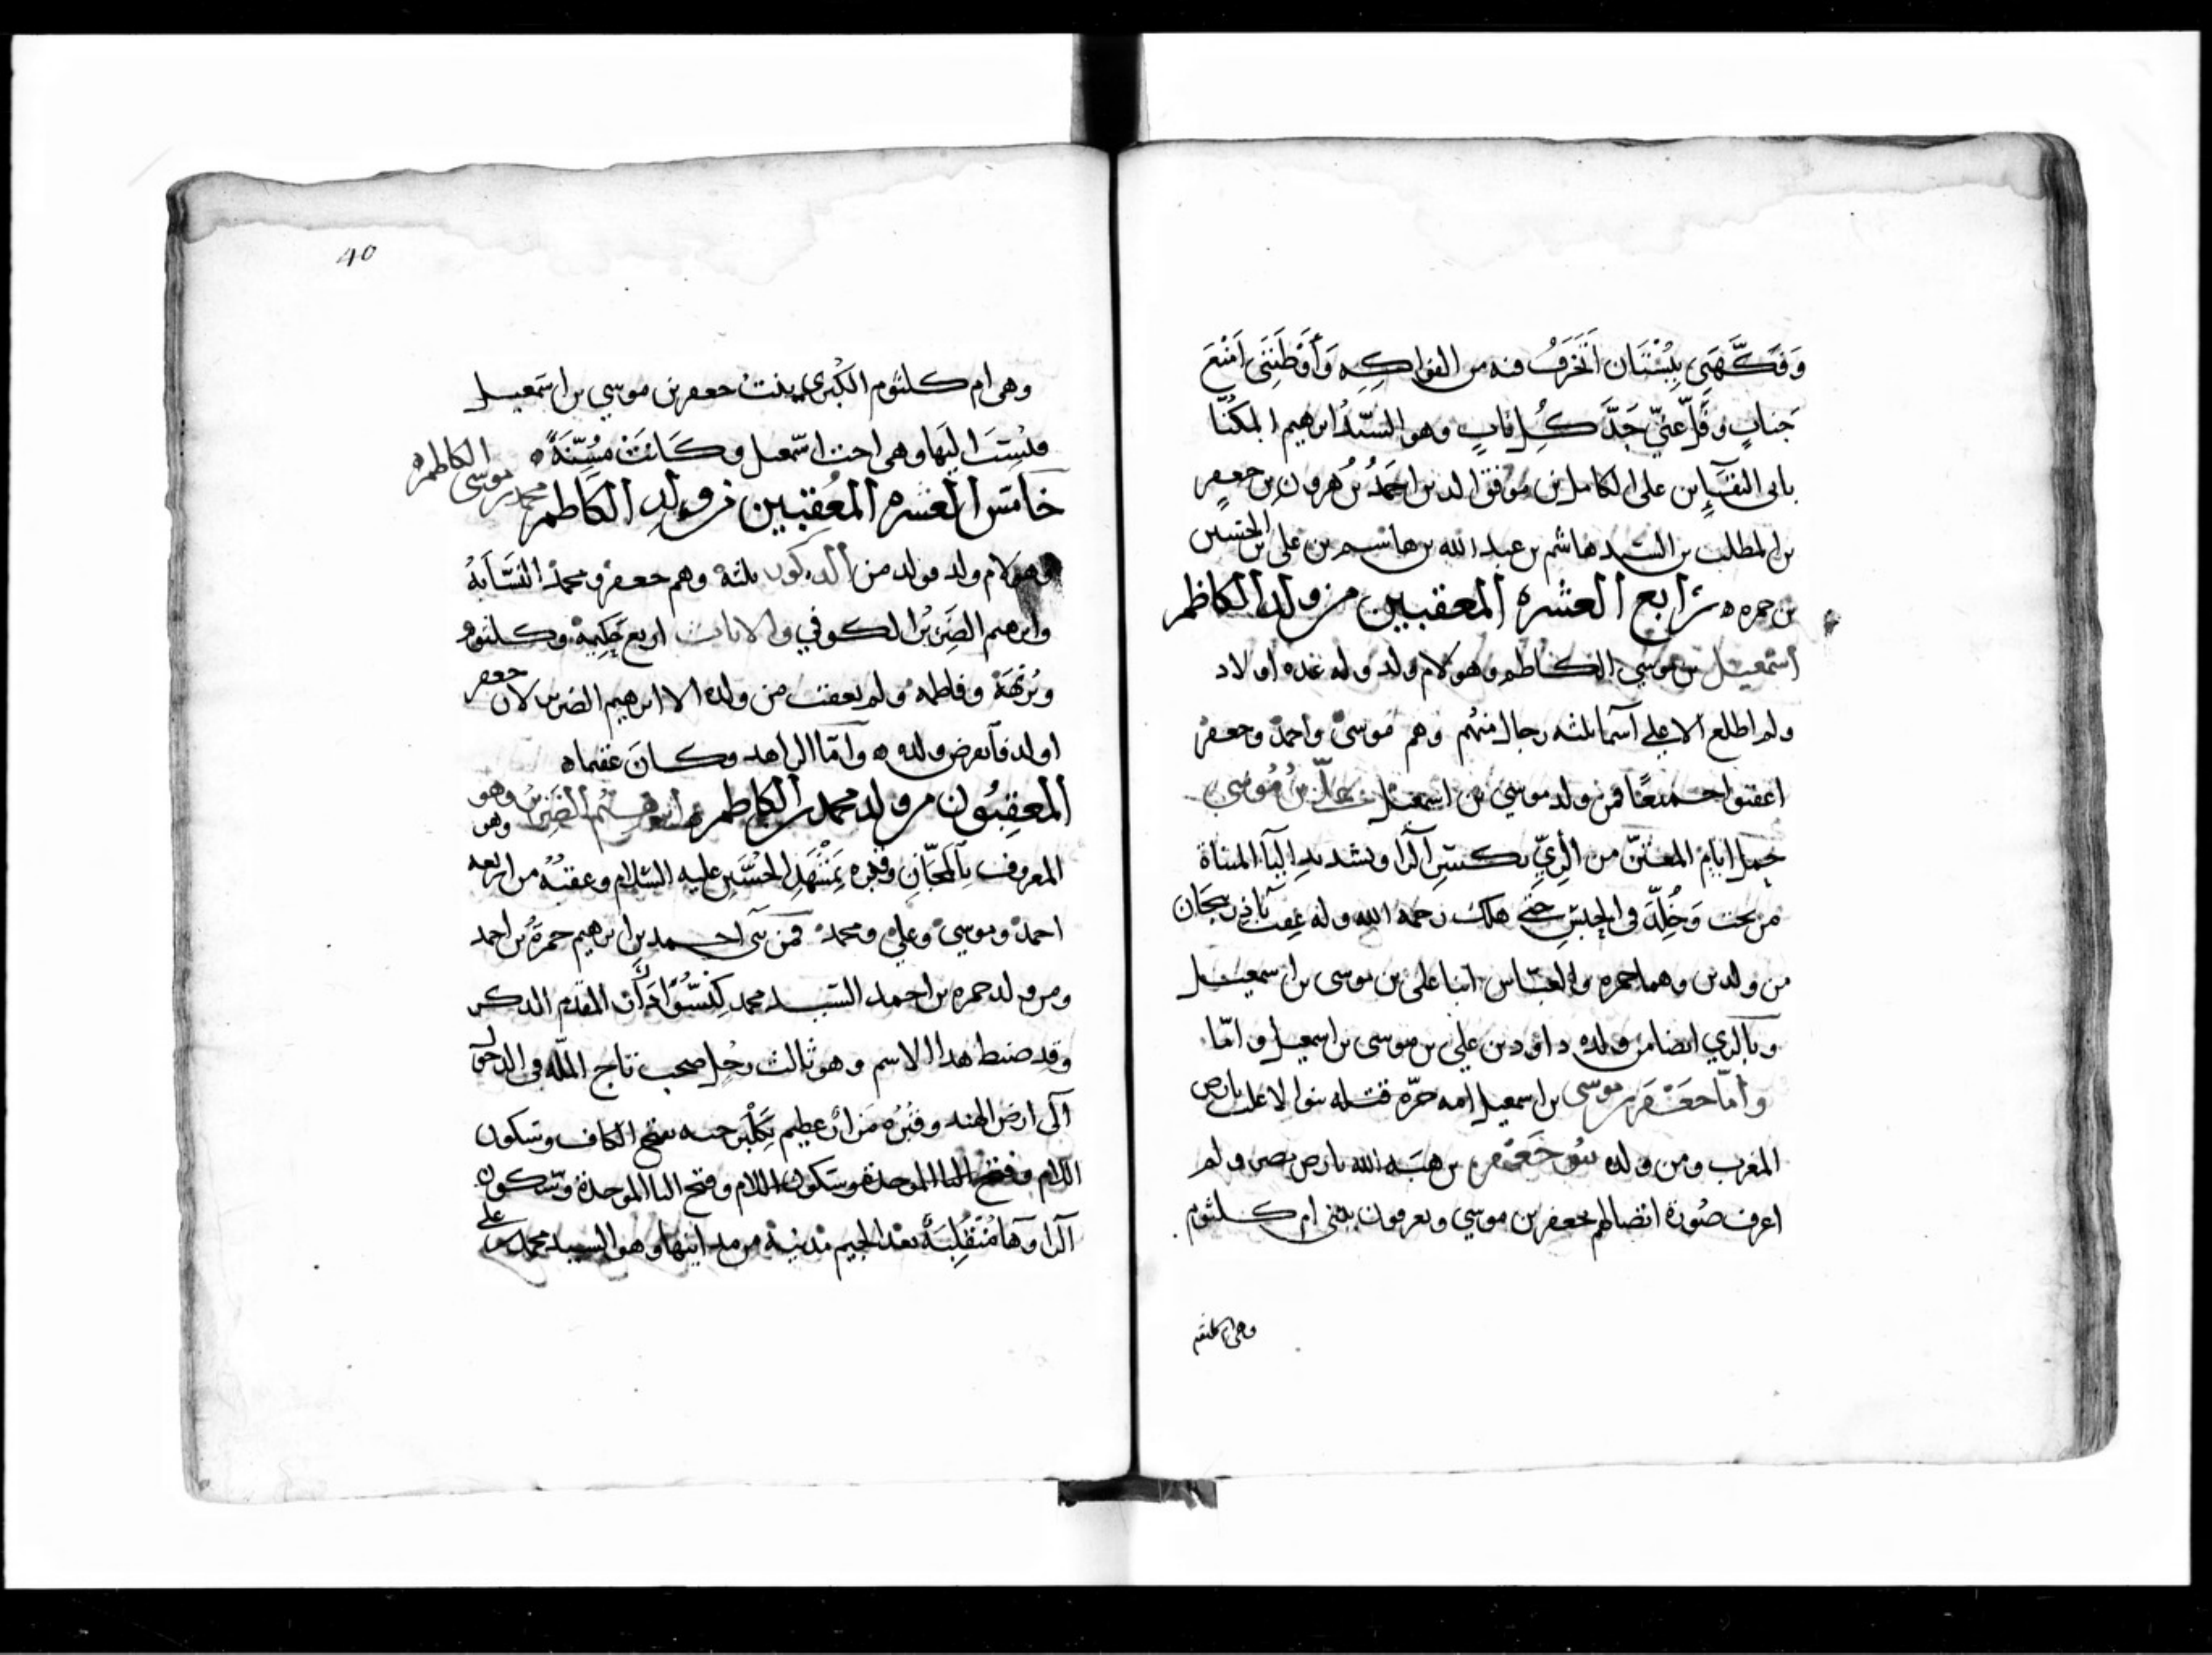 وَفَكَّهَنِي بِبُسْتَان اَتَخَرَّفُ فيه من الفواكِهِ وَأَوْطَنَنِى اَمْنَعَ
جَنابٍ وفَلَّ عنّي حَدَّ كُلِ نابٍ وهو السّيّدُ ابرهيم المكنّا
بابى النقباء بن على الكامل بن موفق الدين احمَدُ بن هرون بن جعفرٍ
بن المطلب بن السّيد هاشم بن عبد الله بن هاشم بن على بن الحسين
بن حمزه ه رابع العشره المعقبين من ولد الكاظم
اسمعيل بن موسى الكاظم وهو لام ولد وله عده اولاد
ولم اطلع الا على اسما ثلثه رجال منهم وهم موسىٌ واحمدٌ وجعفرٌ
اعقبوا جميعًا فمن ولد موسي بن اسمعيل علىّ بن مُوسي
حمل ايام المعتزّ من الرِيّ بكسرِ الرا وتشديدِ اليا المثناة
من تحت وَخُلِّدَ في الحبسِ حتى هلك رحمه الله وله عقب بآذربيجان
من ولدين وهما حمزه والعبّاس ابنا على بن موسى بن اسمعيل
وبالري ايضا من ولده داود بن علي بن موسى بن اسمعيل وامّا
وامّا جَعْفَر بن موسى بن اسمعيل امه حرّه قتله بنوا الاغلب بارض
المغرب ومن ولده بنو جَعْفر بن هبَة الله بارض مصر ولم
اعرف صُورة اتصالهم بجعفر بن موسي ويعرفون ببنى ام كلثوم
وهى ام كلثوم
40
وهى ام كلثوم الكُبْرى بنتُ جعفر بن موسي بن اسمعيل
فنُسِبَوا اليَها وهى اخت اسمعيل وكَانَتْ مُسِنَّةً ه
خامس العشره المُعقبين من ولد الكاظم محمد بن موسى الكاظم ه
وهو لام ولد فولد من الذكور ثلثه وهم جعفر ومحمدٌ النسَّابَهُ
وابرهيم الضريرُ الكوفي والاناث اربع حَكِيمة وكلثوم
وبُريْهَة وفاطمه ولم يعقب من ولده الا ابرهيم الضرير لان جعفر
اولد فانقرض ولده ه وامّا الزاهد وكانَ عقيما ه
المعقِبُون من ولد محمد بن الكاظم ابرهيم الضرير وهو
وهو
المعروف بالمجّانِ وقبره بمَشْهَدِ الحُسَين عليه السّلام وعقبُهُ من اربعه
احمدٌ وموسيٌ وعليٌ ومحمدٌ فمن بنى احمد بن ابرهيم حمزةُ بن احمد
ومن ولد حمزه بن احمد السّيد محمد المقدم الذكر
وقد ضبط هذا الاسم وهو ثالث رجُل صحب تاج الملّه في الدخول
الى ارض الهند وقبْرُه مَزارٌ عظيم بكَلْبرجه بفتح الكاف وسكون
اللام وفتح البا الموحدة وسكون اللام وفتح البا الموحدة وسكون
الرا وها مُنقَلِبَةً بعد الجيم مدينة من مداينها وهو السيد محمد بن على